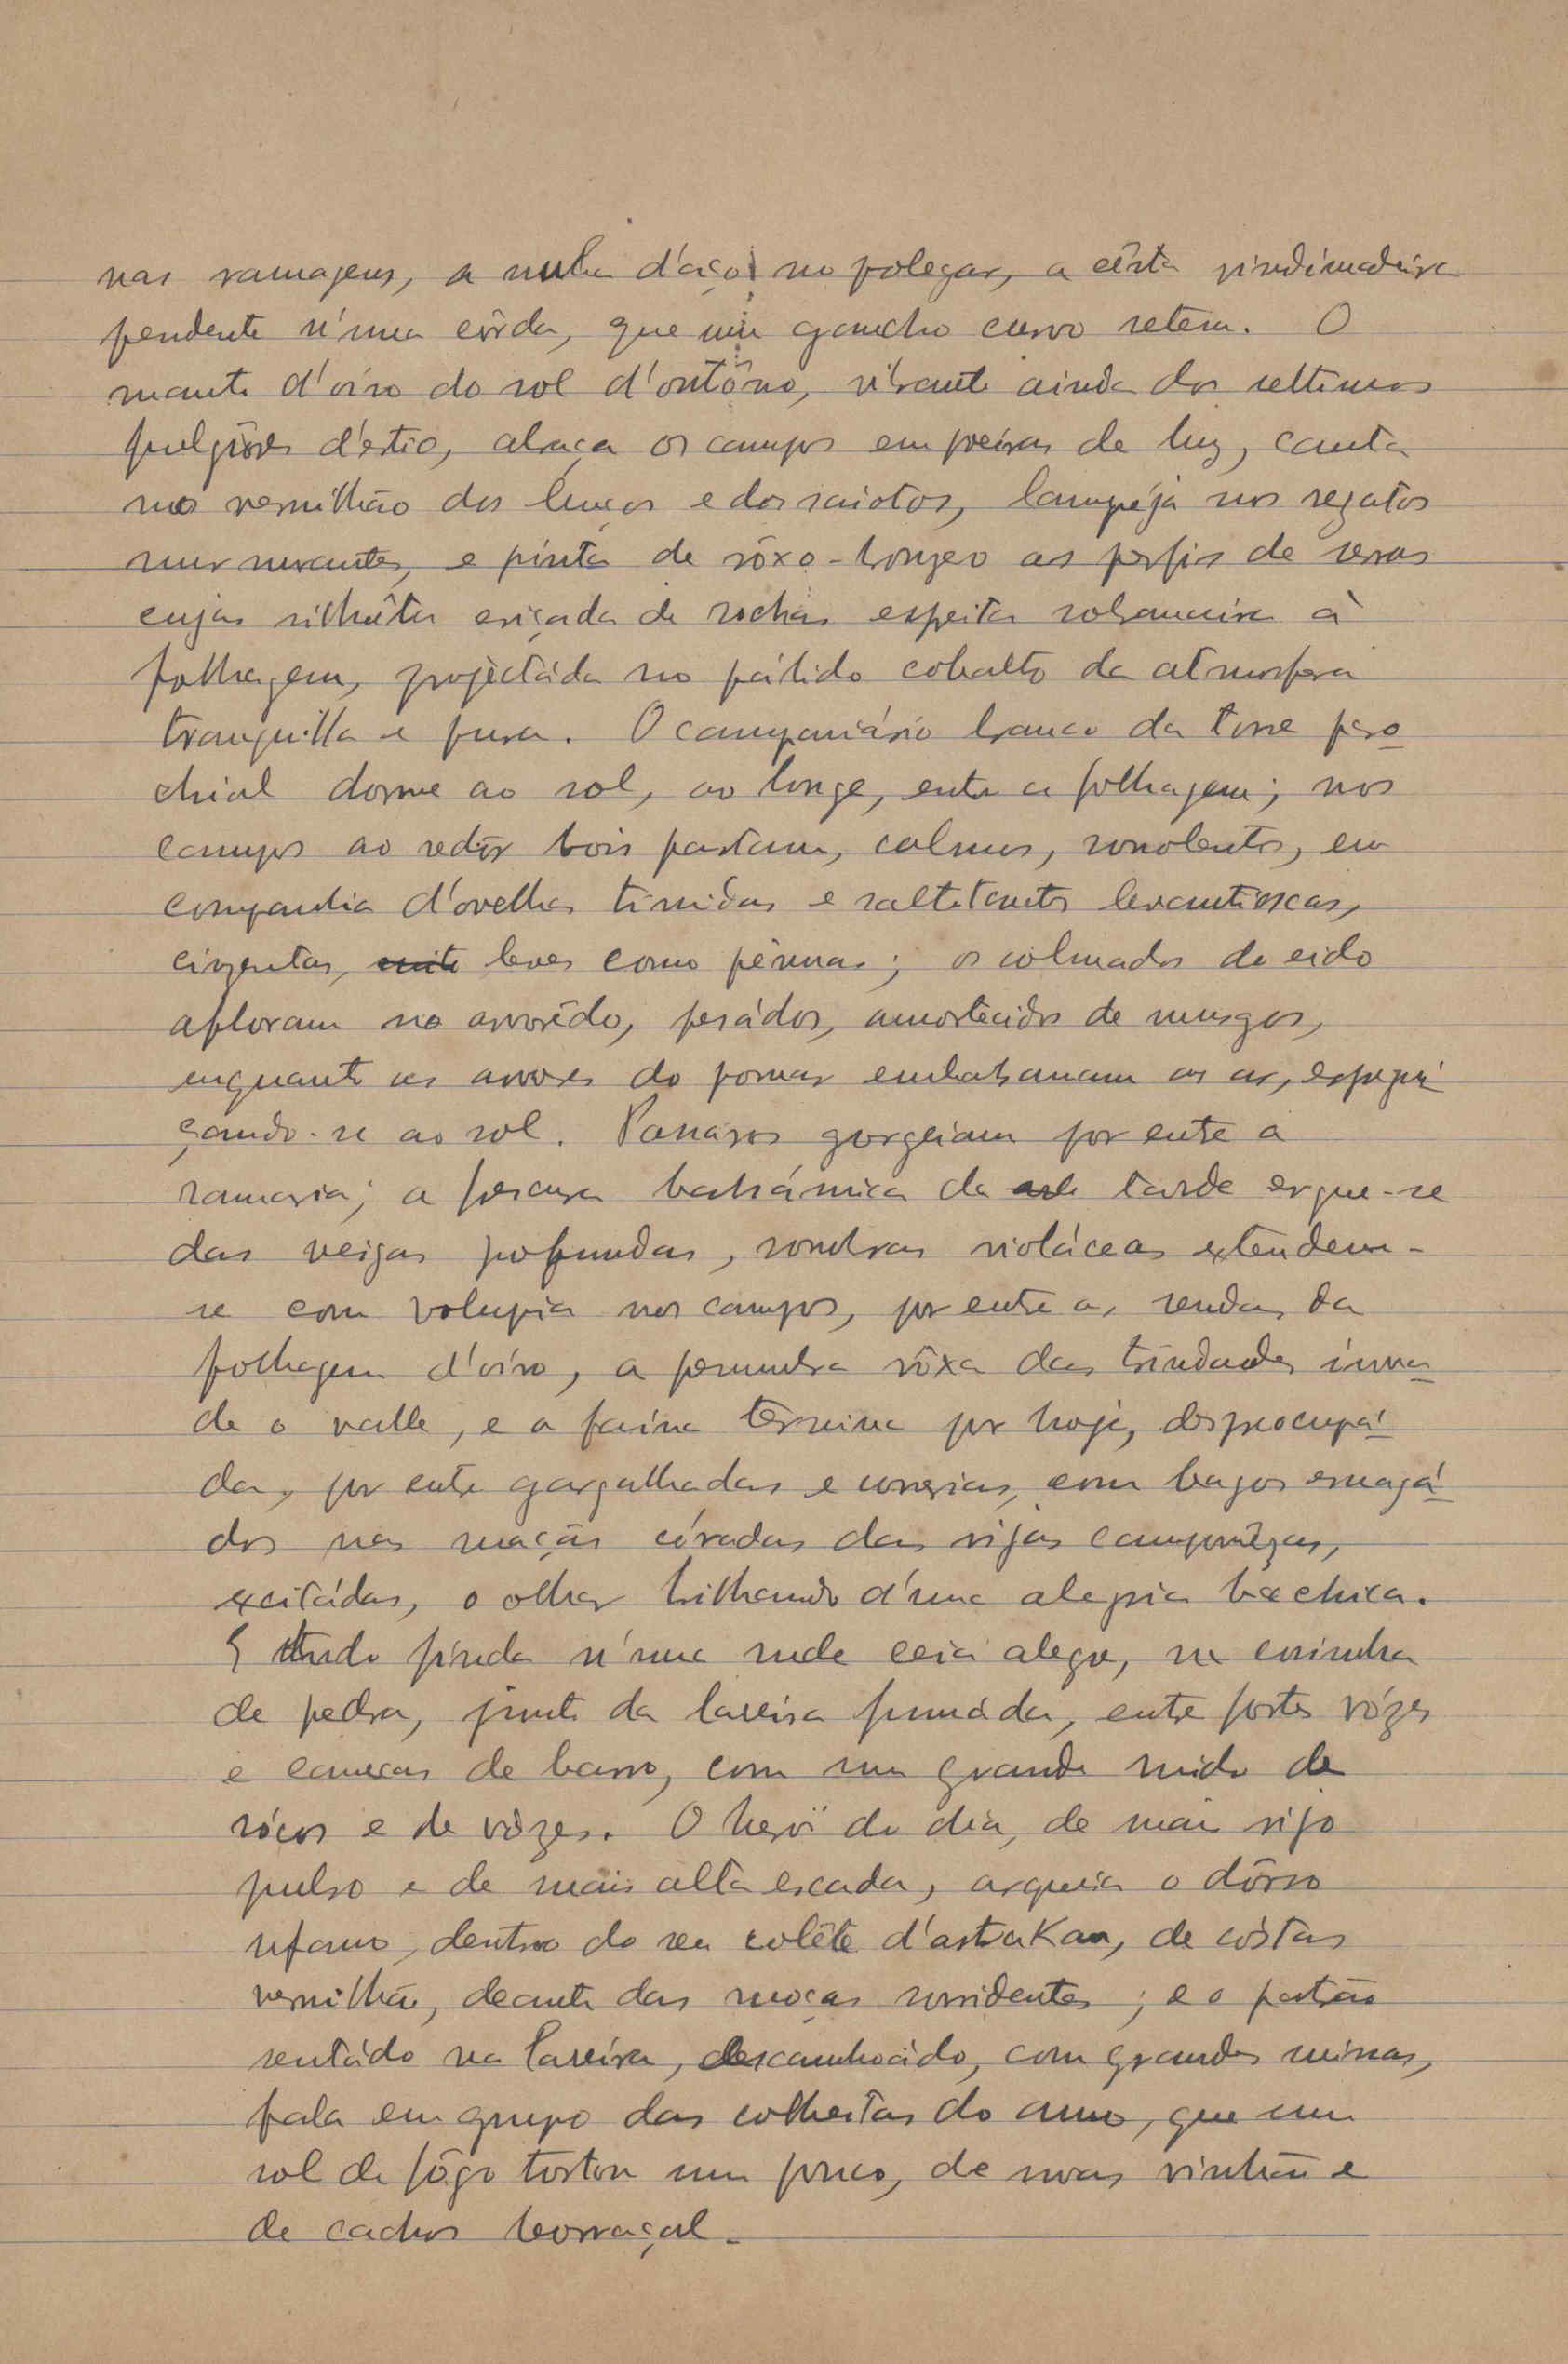 nas ramagens, a unha d'aço no polegar, a césta vindimadeira
pendente n'uma córda, que um gancho curvo retem. O
manto d'oiro do sol d'outôno, vibrante ainda dos ultimos
fulgôres d'estio, abraça os campos em poeiras de luz, canta
no vermilhão dos lenços e dos saiotos, lampeja nos regatos
murmurantes, e pinta de rôxo-longeo os perfis de serras
cujas silhuêta eriçada de rochas espeita sobranceira à
folhagem, projectáda no pálido cobalto da atmosfera
tranquilla e pura. O campanário branco da torre paro
chial dorme ao sol, ao longe, entre a folhagem; nos
campos ao redór bois pastam, calmos, sonolentos, em
companhia d'ovelhas timidas e saltitantes
cinzentas, leves como pénnas; os colmados do eido
afloram no arvorêdo, pesádos, amortecidos de musgos,
enquanto as arvores do pomar embalsamam os ar, espregui
çando-se ao sol. Passaros gorgeiam por entre a
ramaria; a frescura balsámica da tarde ergue-se
das veigas profundas, sombras violáceas extendem-
se com volupia nos campos, por entre as rendas da
folhagem d'oiro, a penumbra rôxa das trindades inva
de o valle, e a faina termina por hoje, despreocupá
da, por entre gargalhadas e correrias, com bagos esmagá
dos nas maçãs córadas das rijas camponêzas,
excitádas, o olhar brilhando d'uma alegria bachica.
E tudo finda n'uma rude ceia alegre, na cosinha
de pedra, junto da lareira fumáda, entre fortes vózes
e canecas de barro, com um grande ruido de
sócos e de vózes. O heroï do dia, de mais rijo
pulso e de mais alta escada, arqueia o dôrso
ufano, dentro do seu colête d'astrakan, de cóstas
vermilhão, deante das moças sorridentes; e o patrão
sentádo na lareira, com grandes
fala em grupo das colheitas do anno, que um
sol de fôgo tostou um pouco, de uvas vinhão e
de cachos borraçal.